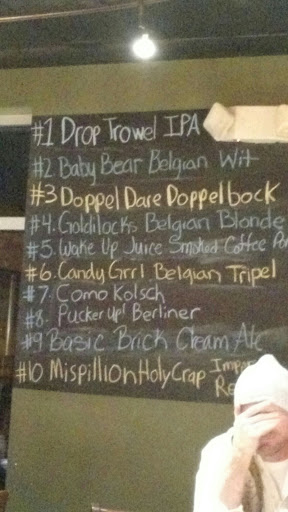 #1 Drop Trowel IPA
#2 Baby Bear Belgian Wit
#3 Doppel Dare Doppelbock
#4. Goldilocks Belgian Blonde
#5. Wake Up Juice Smoked Coffee
#6. Candy Grrl Belgian Tripel
#7 Como Kolsch
#8. Pucker Up! Berliner
#9 Basic Brick Cream Ale
#10 Mispillion Holy Crap